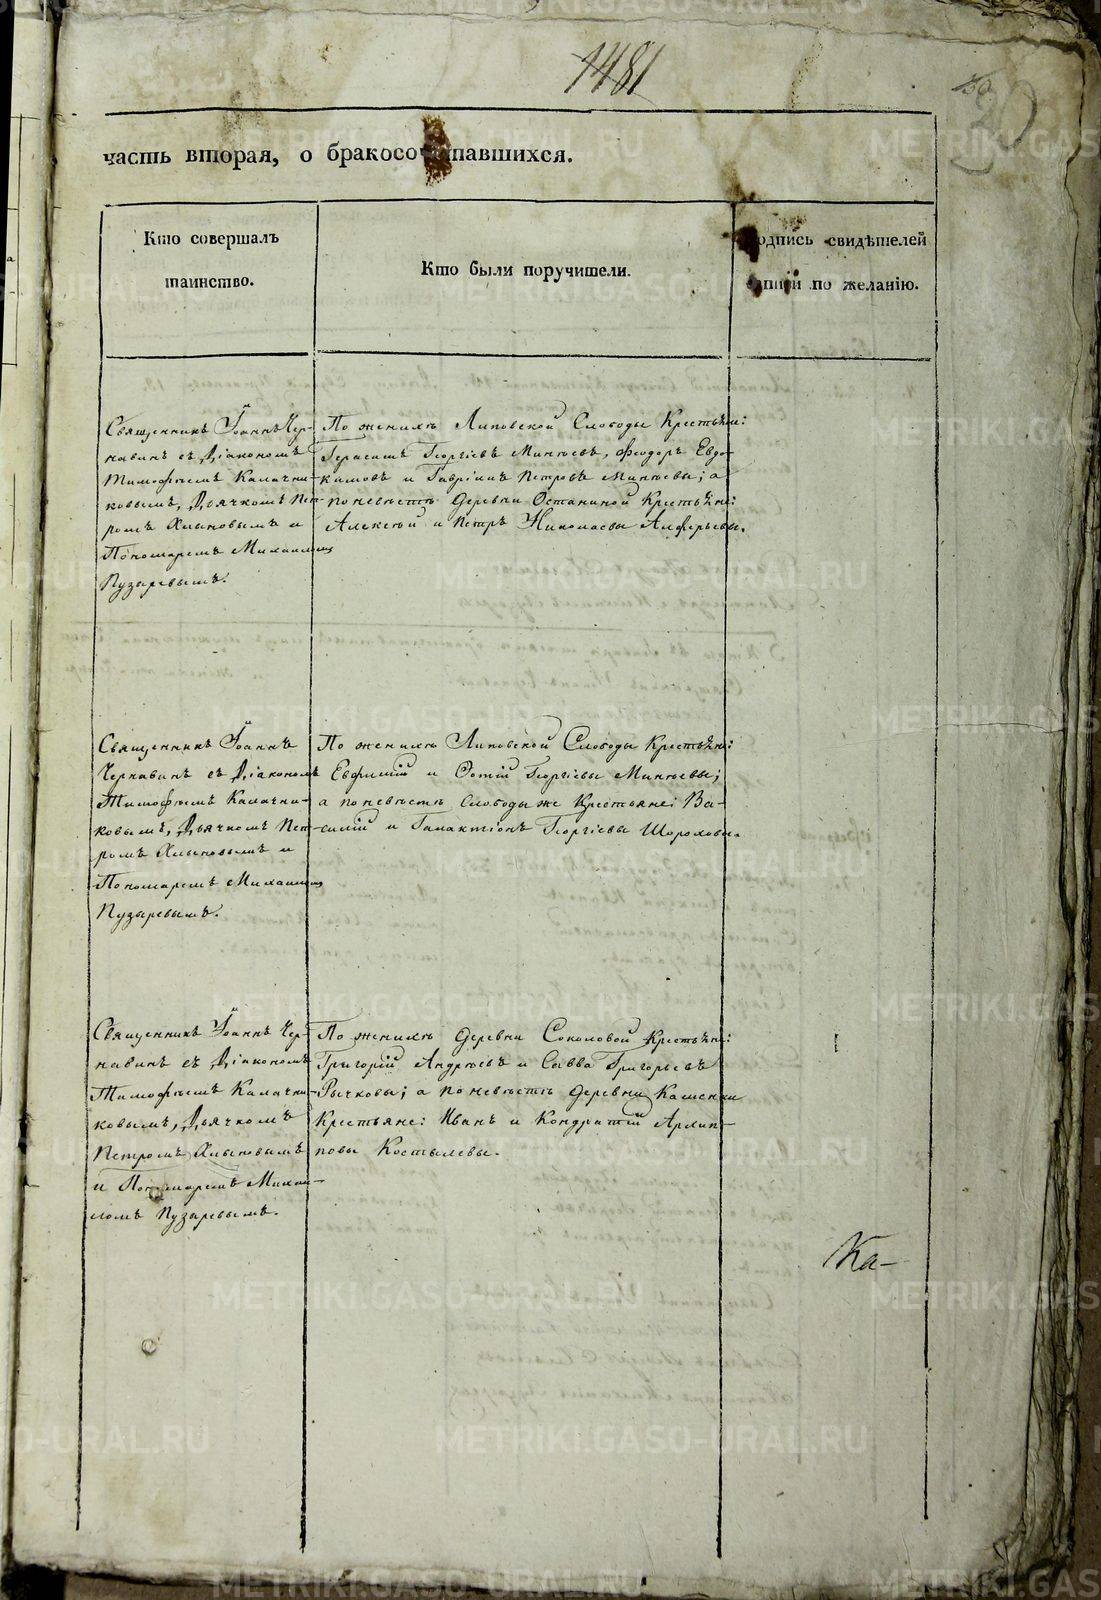 1481
30
часть вторая, о бракосо
павшихся.
Кто совершалъ
таинство.
Кто были поручители.
одпись свидѣтелей
по желанію.
Священникъ Іоаннъ Чер-
навинъ съ Діакономъ
Тимофѣемъ Калачни-
ковымъ, Дьячкомъ Пет-
ромъ Хлыновымъ и
Пономаремъ Михаиломъ
Пузыревымъ.
По женихѣ Липовской Слободы Крестьяне:
Герасимъ Георгіевъ Минѣевъ, Феодоръ Евдо-
кимовъ и Гавріилъ Петровъ Минѣевы; а
по невѣстѣ деревни Останиной Крестьяне:
Алексѣй и Петръ Николаевы Алферьевы.
Священникъ Іоаннъ
Чернавинъ съ Діакономъ
Тимофѣемъ Калачни-
ковымъ, Дьячкомъ Пет-
ромъ Хлыновымъ и
Пономаремъ Михаиломъ
Пузыревымъ.
По женихѣ Липовской Слободы Крестьяне:
Евфимій и Фотій Георгіевы Минѣевы;
а по невѣстѣ Слободы же Крестьяне: Ва-
силій и Галактіонъ Георгіевы Шороховы.
Священникъ Іоаннъ Чер-
навинъ съ Діакономъ
Тимофѣемъ Калачни-
ковымъ, Дьячкомъ
Петромъ Хлыновымъ
и Пономаремъ Михаи-
ломъ Пузыревымъ.
По женихѣ деревни Соколовой Крестьяне:
Григорій Андреевъ и Савва Григорьевъ
Рычковы; а по невѣстѣ деревни Каменки
Крестьяне: Иванъ и Кондратій Архип-
повы Костылевы.
Ка-
METRIKI.GASO-URAL.RU